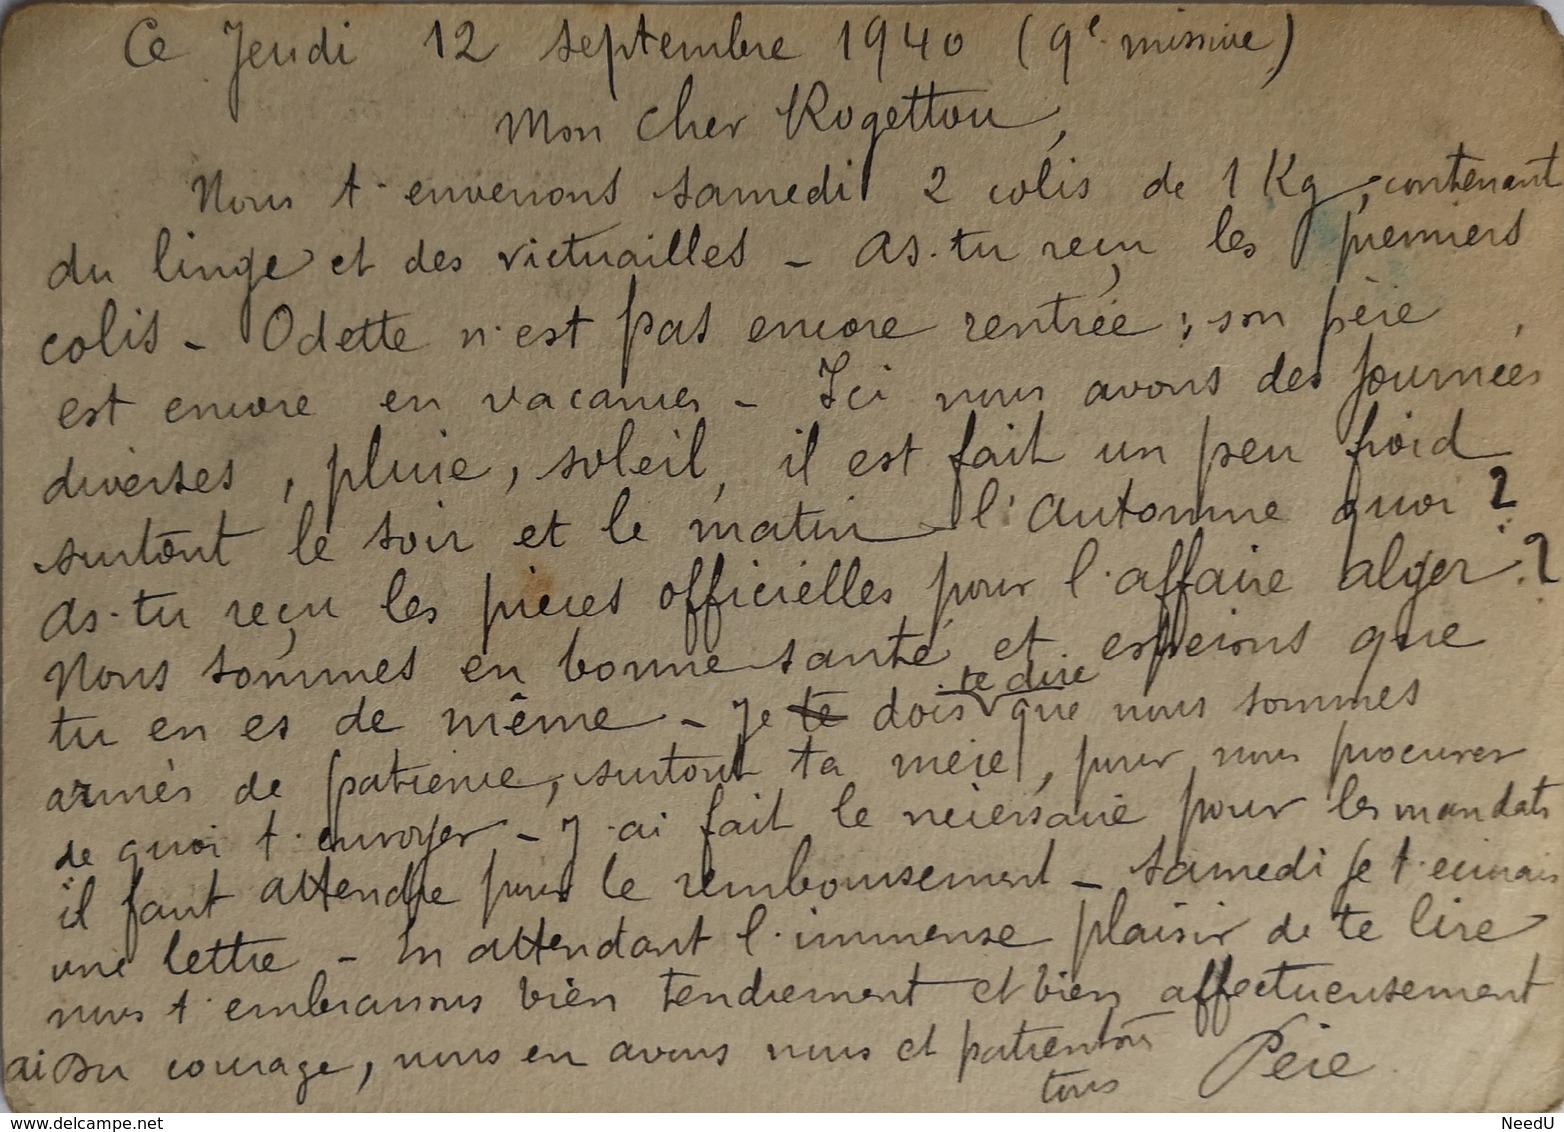 Ce Jeudi 12 septembre 1940 (9e missive)
Mon cher Rogettou,
Nous t'enverrons samedi 2 colis de 1 Kg, contenant
du linge et des victuailles - as-tu reçu les premiers
colis - Odette n'est pas encore rentrée ; son père
est encore en vacances - Ici nous avons des journées
diverses, pluie, soleil, il est fait un peu froid
surtout le soir et le matin - l'automne quoi ?
as-tu reçu les pièces officielles pour l'affaire alger ?
Nous sommes en bonne santé et espérons que
tu en es de même - Je te dois te dire que nous sommes
armés de patience, surtout ta mère, pour nous procurer
de quoi t'envoyer - J'ai fait le nécessaire pour les mandats
il faut attendre pour le remboursement - samedi je t'écrirais
une lettre - En attendant l'immense plaisir de te lire
nous t'embrassons bien tendrement et bien affectueusement
ai du courage, nous en avons nous et patientons
tous Père
delcampe.net
NeedU